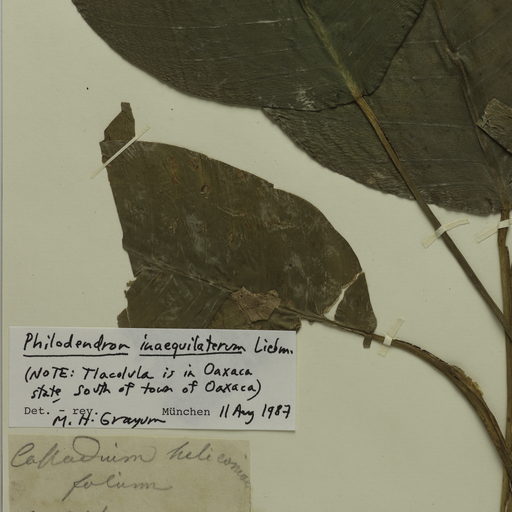 Philodendron inaequilaterum Liebm.
(NOTE: Tlacolula is in Oaxaca
state, south of town of Oaxaca)
Det. – rev. München 11 Aug 1987
M. H. Grayum
folium